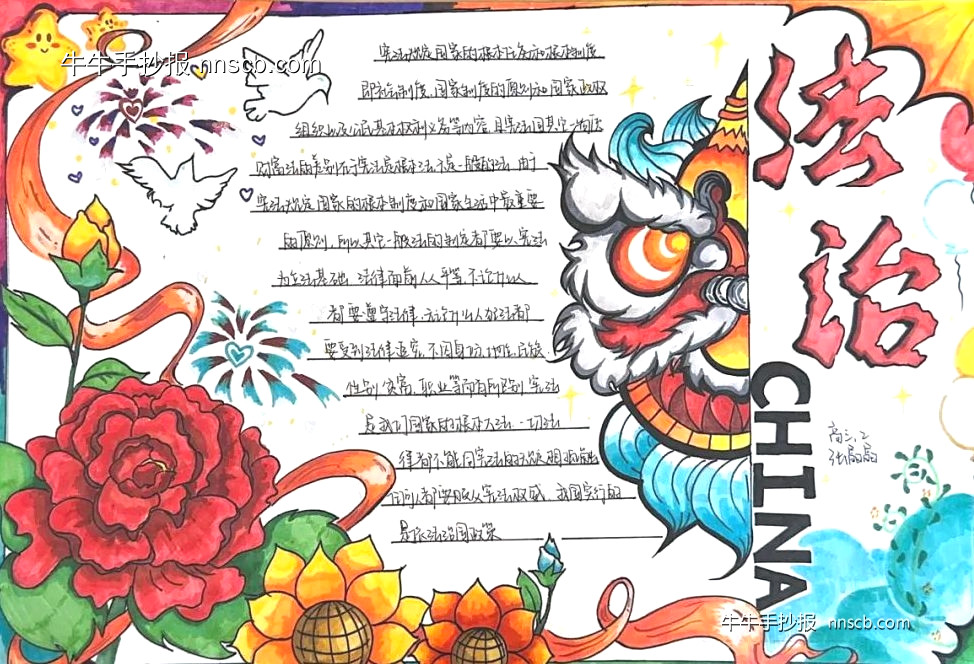 牛牛手抄报 nnscb.com
宪法规定国家的根本任务和根本制度
即社会制度、国家制度的原则和国家政权
组织以及公民基本权利义务等内容
宪法规定国家的根本制度和国家生活中最重要
的原则,所以其它一般法的制定都要以宪法
为立法基础 法律面前人人平等 不论什么人
都要遵守法律,无论什么人违法都
要受到法律追究,不因身份、地位、民族、
性别、贫富、职业等而有所区别 宪法
是我们国家的根本大法,一切法
律都不能同宪法的
都要服从宪法权威,我国实行的
是依法治国政策
法治
CHINA
高三.2
张晶晶
牛牛手抄报 nnscb.com